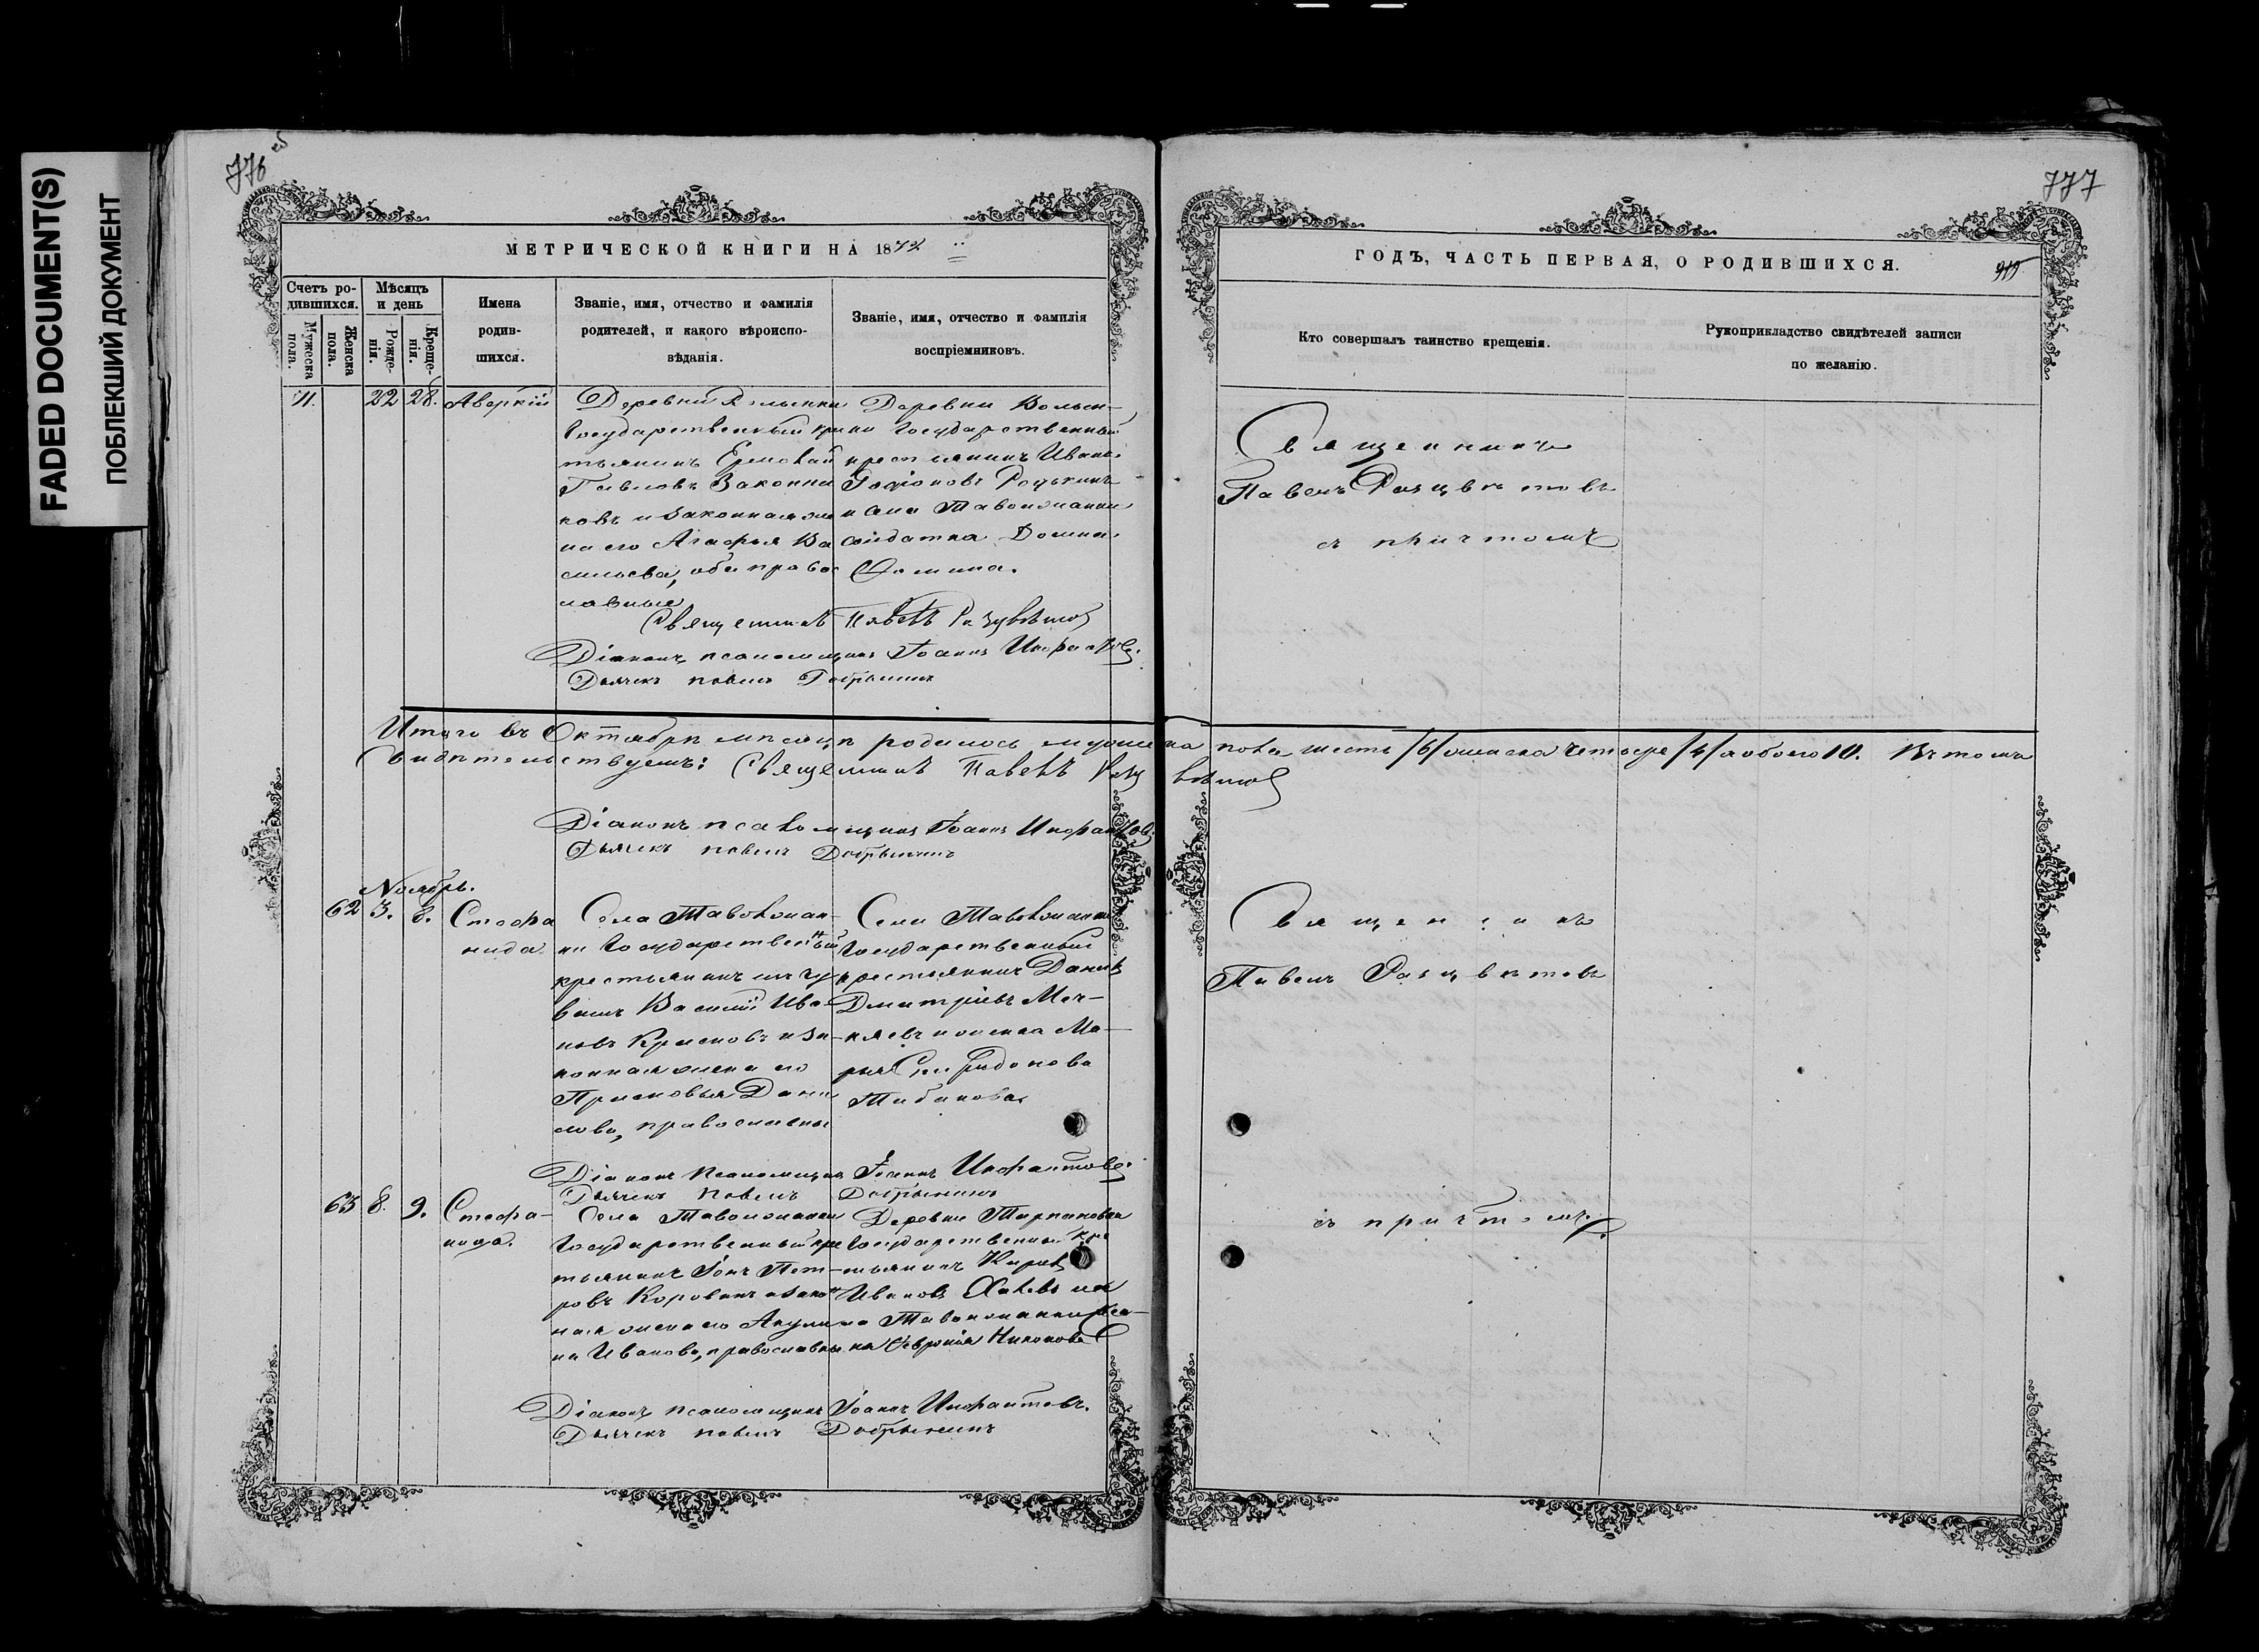 FADED DOCUMENT(S)
ПОБЛЕКШИЙ ДОКУМЕНТ
776
МЕТРИЧЕСКОЙ КНИГИ НА 1872
Счетъ родившихся.
Мужеска пола.
Женска пола.
Мѣсяцъ и день
Рожденія.
Крещенія.
Имена
родив-
шихся.
Званіе, имя, отчество и фамилія
родителей, и какого вѣроиспо-
вѣданія.
Званіе, имя, отчество и фамилія
воспріемниковъ.
71. 22 28. Аверкій
Деревни
Государственный крес
тьянинъ Еремѣй
Павловъ
ковъ и законная же
на его Агафья Ва
сильева, оба правос
лавные
Деревни
ки Государственный
крестьянинъ Иванъ
Родіоновъ
и села Таволжанки
солдатка Домна
Фомина.
Священникъ Павелъ Разцвѣтовъ
Діаконъ псаломщикъ Іоаннъ Инфантовъ.
Дьячекъ Павелъ Добрынинъ
Итого въ Октябрѣ мѣсяцѣ родилось мужеска пола шесть /6/ женска четыре /4/ а обоего 10. Въ томъ
свидѣтельствуемъ: Священникъ Павелъ Разцвѣтовъ
Діаконъ псаломщикъ Іоаннъ Инфантовъ.
Дьячекъ Павелъ Добрынинъ
Ноябрь.
62 3. 8. Стефа
нида.
Села Таволжан-
ки Государственный
крестьянинъ
Василій Ива-
новъ Красновъ и за-
конная жена его
Прасковья Дани
лова, православные
Села Таволжанки
Государственный
крестьянинъ Данилъ
Дмитріевъ
и женка Ма-
рья Спиридонова
Табакова.
Діаконъ Псаломщикъ Іоаннъ Инфантовъ.
Дьячекъ Павелъ Добрынинъ
63 8. 9. Стефа-
нида.
Села Таволжанки
Государственный крес
тьянинъ Іонъ Пет-
ровъ Коровинъ и закон
ная жена его Акули
на Иванова, православные
Деревни
Государственный кре
стьянинъ
Ивановъ и села
Таволжанки
Февронія Никонова
Діаконъ псаломщикъ Іоаннъ Инфантовъ.
Дьячекъ Павелъ Добрынинъ
777
ГОДЪ, ЧАСТЬ ПЕРВАЯ, О РОДИВШИХСЯ.
Кто совершалъ таинство крещенія.
Рукоприкладство свидѣтелей записи
по желанію.
Священникъ
Павелъ Разцвѣтовъ
съ причтомъ
Священникъ
Павелъ Разцвѣтовъ
съ причтомъ.